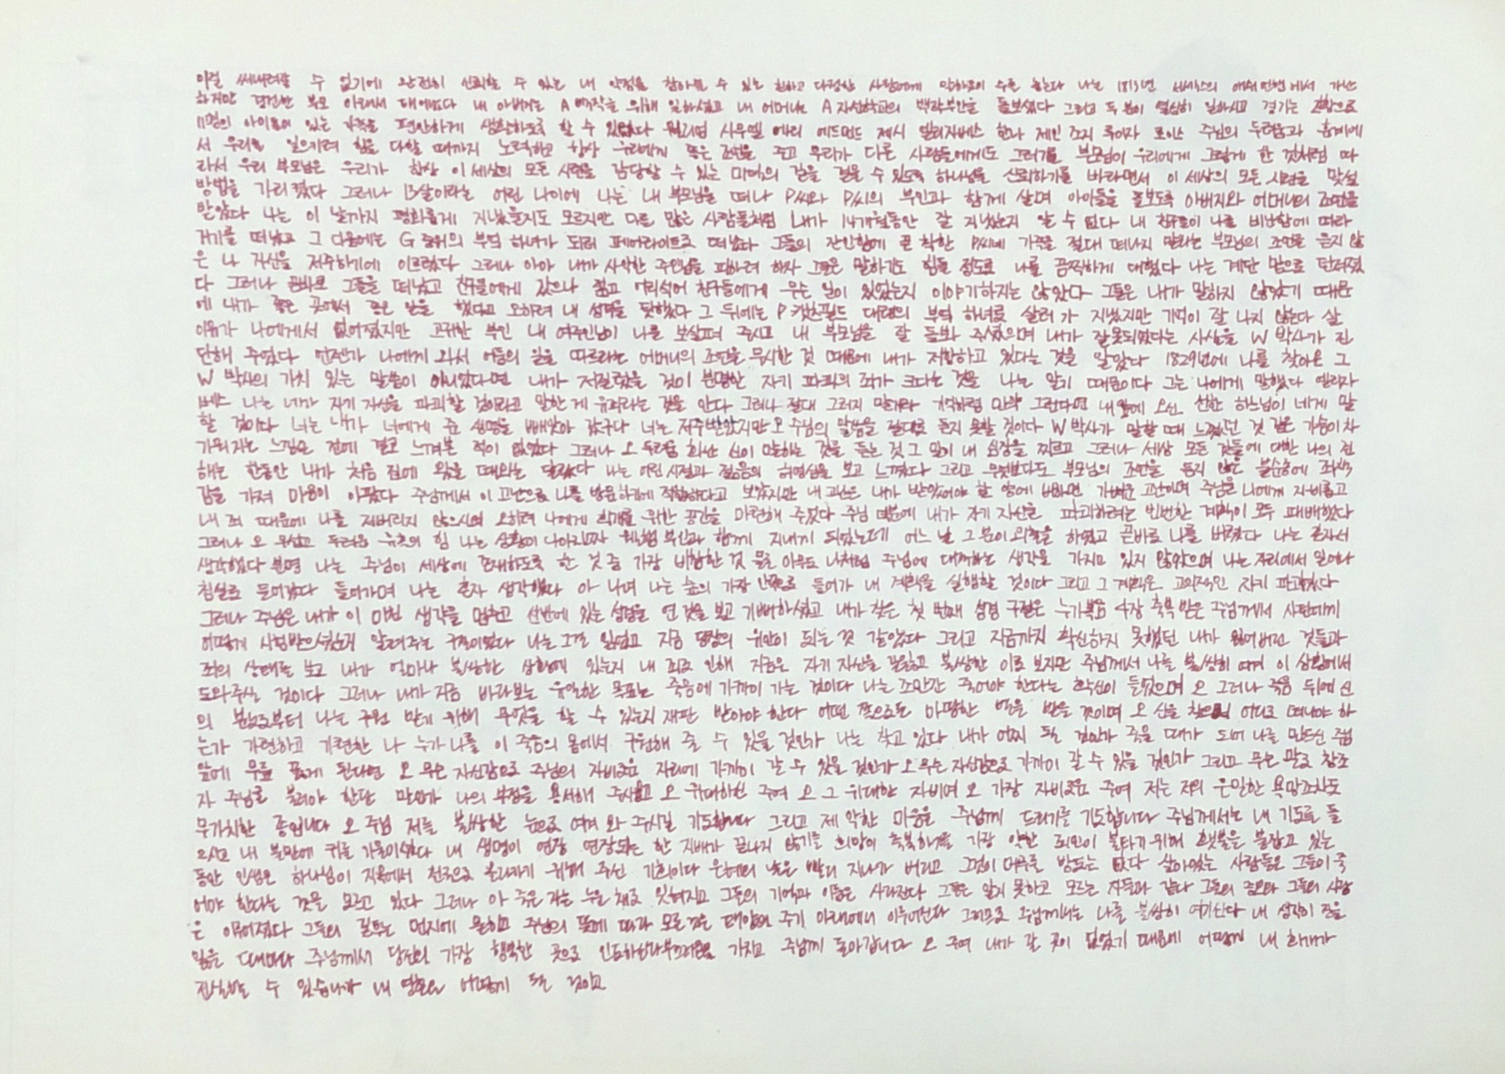 이걸 써내려갈 수 없기에 완전히 신뢰할 수 있는 내 약점을 참아줄 수 있는 친하고 다정한 사람에게 말하듯이 수를 놓는다 나는 1813년 서섹스의 에서 가난
하지만 경건한 부모 아래서 태어났다 내 아버지는 A 백작을 위해 일하셨고 내 어머니는 A 자선학교의 빨랫부간을 돌보셨다 그리고 두 분이 열심히 일하시고 경기는 건강으로
11명의 아이들이 있는 가족을 편안하게 생활하도록 할 수 있었다 윌리엄 사무엘 에리 에드먼드 제시 엘리자베스 한나 제인 조지 루이자 로이스 주님의 두려움과 함께에
서 우리를 일으키려 힘을 다할 때까지 노력하고 항상 우리에게 좋은 조언을 주고 우리가 다른 사람들에게도 그러기를 부모님이 우리에게 그렇게 한 것처럼 따
라서 우리 부모님은 우리가 항상 이 세상의 모든 시련을 감당할 수 있는 미덕의 길을 걸을 수 있도록 하나님을 신뢰하기를 바라면서 이 세상의 모든 시련을 맞설
방법을 가리켰다 그러나 13살이라는 어린 나이에 나는 내 부모님을 떠나 P씨와 P씨의 부인과 함께 살며 아이들을 돌보도록 아버지와 어머니의 조언을
받았다 나는 이 날까지 평화롭게 지냈을지도 모르지만 다른 많은 사람들처럼 내가 14개월동안 잘 지냈는지 알 수 없다 내 친구들이 나를 비난함에 따라
거기를 떠났고 그 다음에는 G 중위의 부엌 하녀가 되러 페어라이트로 떠났다 그들의 잔인함에 곧 착한 P씨네 가족을 절대 떠나지 말라는 부모님의 조언을 듣지 않
은 나 자신을 저주하기에 이르렀다 그러나 아아 내가 사악한 주인님을 피하려 하자 그들은 말하기도 힘들 정도로 나를 끔찍하게 대했다 나는 계단 밑으로 던져졌
다 그러나 곧바로 그들을 떠났고 친구들에게 갔으나 젊고 어리석어 친구들에게 무슨 일이 있었는지 이야기하지는 않았다 그들은 내가 말하지 않았기 때문
에 내가 좋은 곳에서 좋은 일을 했다고 오히려 내 성미를 탓했다 그 뒤에는 P 카산필드 대령의 부엌 하녀로 살러 가 지냈지만 기억이 잘 나지 않는다 살
이유가 나에게서 없어졌지만 고귀한 부인 내 여주인님이 나를 보살펴 주시고 내 부모님을 잘 돌봐 주셨으며 내가 잘못되었다는 사실을 W 박사가 진
단해 주었다 언젠가 나에게 와서 어둠의 일을 따르라는 어머니의 조언을 무시한 것 때문에 내가 저항하고 있다는 것을 알았다 1829년에 나를 찾아온 그
W 박사의 가치 있는 말씀이 아니었다면 내가 저질렀을 것이 분명한 자기 파괴의 죄가 크다는 것을 나는 알기 때문이다 그는 나에게 말했다 엘리자
베스 나는 네가 자기 자신을 파괴할 것이라고 말한 게 유죄라는 것을 안다 그러나 절대 그러지 말거라 기억하렴 만약 그런다면 내 앞에 오신 선한 하느님이 네게 말
할 것이다 너는 내가 너에게 준 생명을 빼앗아 갔구나 너는 저주받았지만 오 주님의 말씀을 절대로 듣지 못할 것이다 W 박사가 말할 때 느꼈던 것 같은 가슴이 차
가워지는 느낌은 전에 결코 느껴본 적이 없었다 그러나 오 두려움 화난 신이 말하는 것을 듣는 것 그 일이 내 심장을 찌르고 그러나 세상 모든 것들에 대한 나의 견
해는 한동안 내가 처음 집에 왔을 때와는 달랐다 나는 어린 시절과 젊음의 허영심을 보고 느꼈다 그리고 무엇보다도 부모님의 조언을 듣지 않은 불순종에 죄책
감을 가져 마음이 아팠다 주님께서 이 고난으로 나를 방문하기에 적합하다고 보았지만 내 고난은 내가 받았어야 할 것에 비하면 가벼운 고난이며 주님은 나에게 자비롭고
내 죄 때문에 나를 저버리지 않으시며 오히려 나에게 회개를 위한 공간을 마련해 주었다 주님 때문에 내가 자기 자신을 파괴하려는 빈번한 계획이 모두 패배했다
그러나 오 무섭고 두려운 유혹의 힘 나는 상황이 나아진 부인과 함께 지내기 되었는데 어느 날 그분이 외출을 하였고 곧바로 나를 버렸다 나는 혼자서
생각했다 분명 나는 주님이 세상에 존재하도록 한 것 중 가장 비참한 것 물론 아무도 나처럼 주님에 대적하는 생각을 가지고 있지 않았으며 나는 자리에서 일어나
침실로 들어갔다 들어가며 나는 혼자 생각했다 아 나여 나는 숲의 가장 안쪽으로 들어가 내 계획을 실행할 것이다 그리고 그 계획은 고의적인 자기 파괴였다
그러나 주님은 내가 이 미친 생각을 멈추고 선반에 있는 성경을 연 것을 보고 기뻐하셨고 내가 찾은 첫 번째 성경 구절은 누가복음 4장 축복 받은 주님께서 사탄에게
어떻게 시험받으셨는지 알려주는 구절이었다 나는 그걸 읽었고 지금 명상의 위안이 되는 것 같았다 그리고 지금까지 확신하지 못했던 내가 잃어버린 것들과
죄의 상태를 보고 내가 얼마나 불쌍한 상황에 있는지 내 죄로 인해 지금은 자기 자신을 잃고 불쌍한 이로 보지만 주님께서 나를 불쌍히 여겨 이 상황에서
도와주실 것이다 그러나 내가 지금 바라보는 유일한 목표는 죽음에 가까이 가는 것이다 나는 조만간 죽어야 한다는 확신이 들었으며 오 그러나 죽음 뒤에 신
의 분노로부터 나는 구원 받기 위해 무엇을 할 수 있는지 재판 받아야 한다 어떤 쪽으로든 마땅한 벌을 받을 것이며 오 신을 어디로 떠나야 하
는가 가련하고 가련한 나 누가 나를 이 죽음의 몸에서 구원해 줄 수 있을 것인가 나는 찾고 있다 내가 어찌 될 것인가 죽을 때가 되어 나를 만드신 주님
앞에 무릎 꿇게 된다면 오 무슨 자신감으로 주님의 자비로운 자리에 가까이 갈 수 있을 것인가 오 무슨 자신감으로 가까이 갈 수 있을 것인가 그리고 무슨 말로 창조
자 주님을 불러야 한단 말인가 나의 부정을 용서해 주시고 오 위대하신 주여 오 그 위대한 자비여 오 가장 자비로운 주여 저는 저의 은밀한 욕망조차도
무가치한 종입니다 오 주님 저를 불쌍한 눈으로 여겨 와 주시길 기도합니다 그리고 제 악한 마음을 주님께 드리기를 기도합니다 주님께서는 내 기도를 들
으시고 내 불만에 귀를 기울이셨다 내 생명이 연장 연장되는 한 지배가 끝나지 않기를 희망이 축복하기를 가장 악한 죄인이 불타기 위해 횃불을 붙잡고 있는
동안 인생은 하나님이 지옥에서 천국으로 올라가기 위해 주신 기회이다 은혜의 날은 빨리 지나가 버리고 그것이 머무를 방도는 없다 살아있는 사람들은 그들이 죽
어야 한다는 것을 모르고 있다 그러나 아 죽은 자는 누운 채로 잊혀지고 그들의 기억과 이름은 사라진다 그들은 알지 못하고 모르는 자들과 같다 그들의 증오와 그들의 사랑
은 이루어졌다 그들의 질투는 먼지에 묻히고 주님의 뜻에 따라 모든 것은 태양의 주기 아래에서 이루어진다 그러므로 주님께서는 나를 불쌍히 여기신다 내 생각이 곧을
잃을 때마다 주님께서 당신의 가장 행복한 곳으로 인도하신다 부끄러움을 가지고 주님께 돌아갑니다 오 주여 내가 갈 곳이 없었기 때문에 어떻게 내 회개가
진실할 수 있습니까 내 영혼은 어떻게 될 것인가